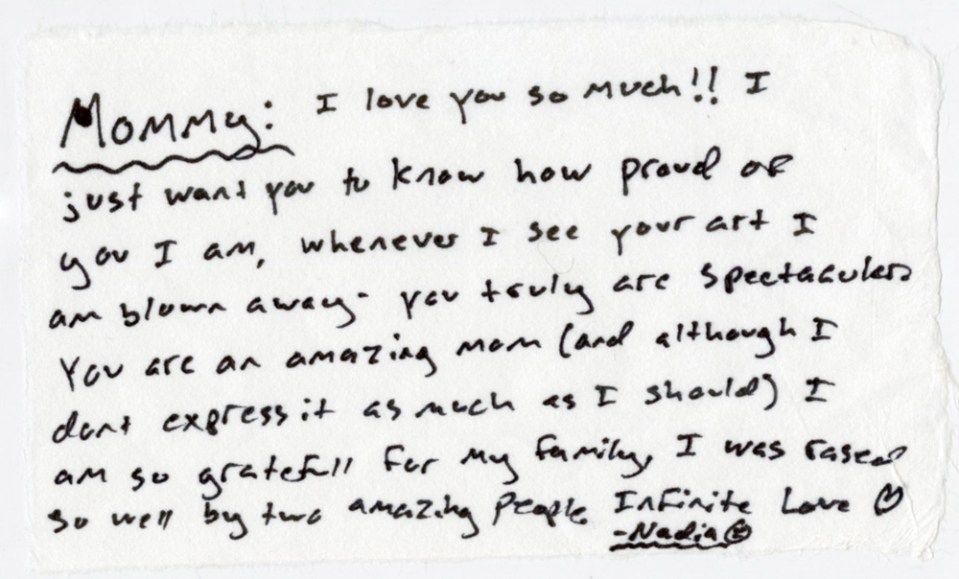 Mommy: I love you so much!! I
just want you to know how proud of
you I am, whenever I see your art I
am blown away. you truly are spectaacular.
You are an amazing mom (and although I
dont express it as much as I should) I
am so gratefull for my family, I was rased
so well by two amazing people. Infinite Love ♡
-Nadia☺